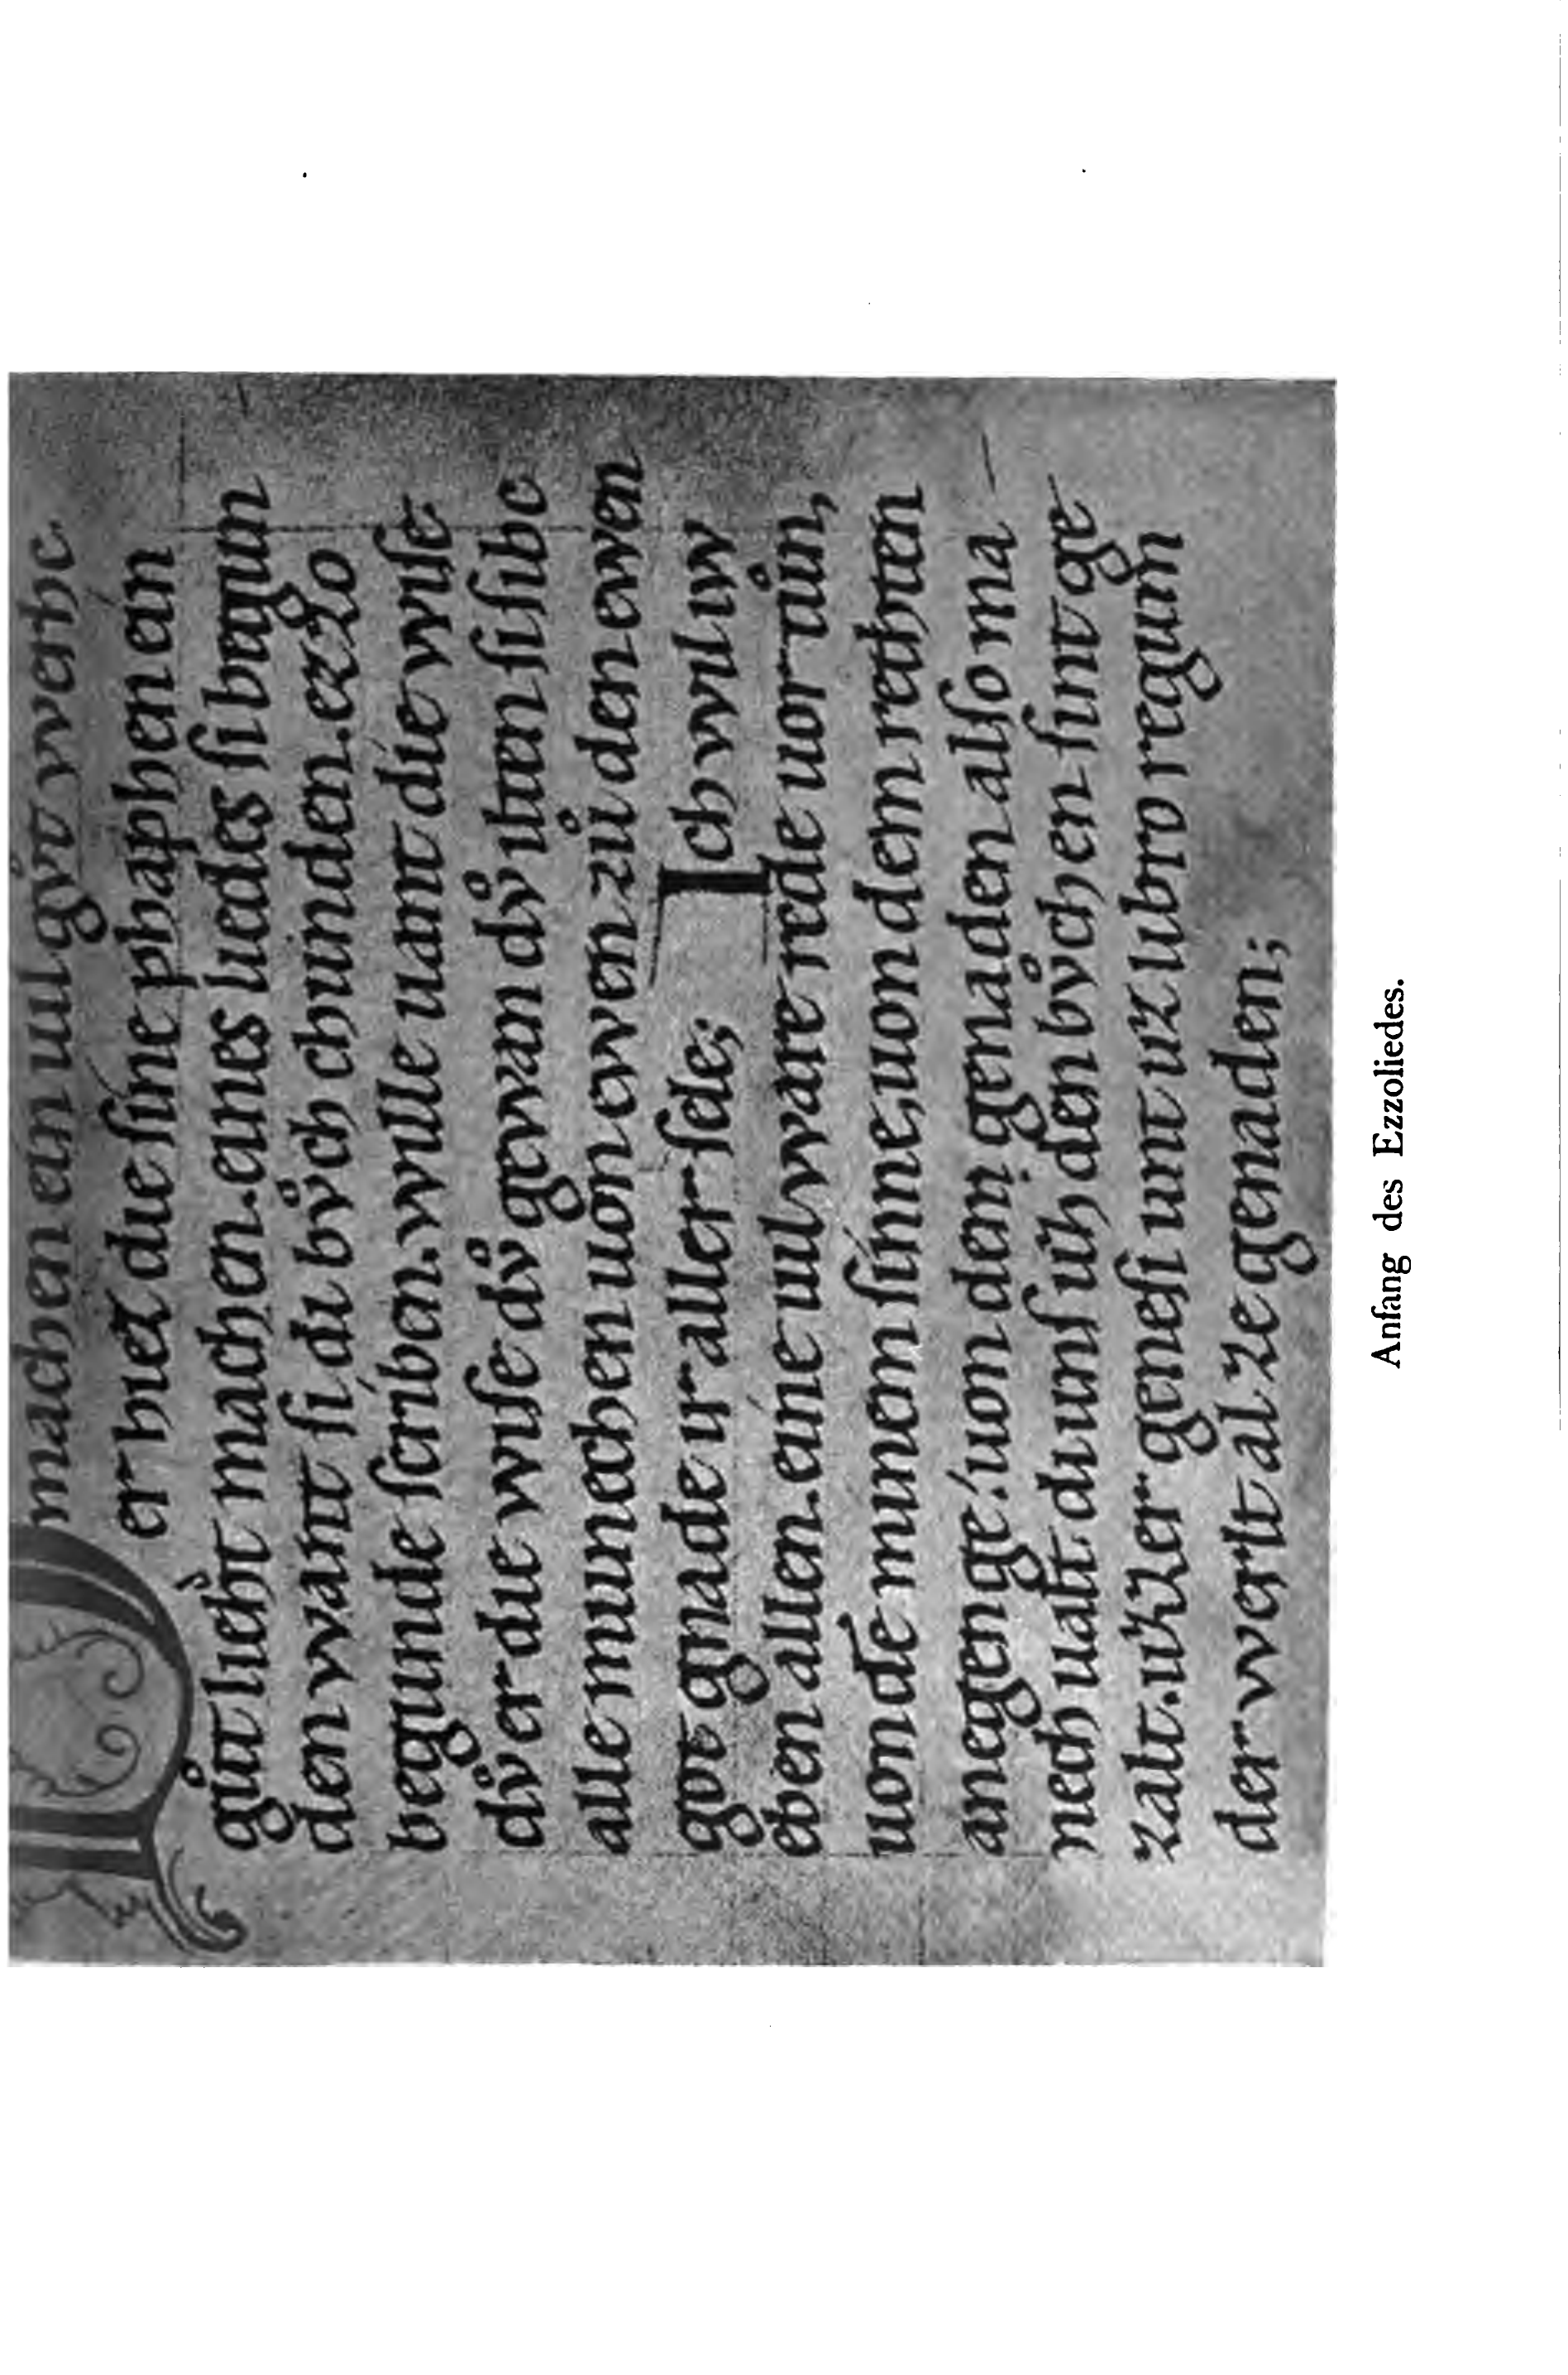 machen ein uil gůt werhc
er hiez die ſine phaphen ein
gůit lieht machen. eines liedes ſi begun
den want ſi di bůch chunden. ezzo
begunde ſcriben. wille uant die wiſe
důer die wiſe dů gewan dů ilten ſi ſihc
alle munechen uon ewen zůi den ewen
got gnade ir aller ſele;
Ich wil iw
eben allen. eine uil ware rede uor tůin,
uonde minem ſinne, uon dem rehten
anegenge. uon dem genaden alſo ma
nech ualt. di unſ uih den bůchen ſint ge
zalt. uzzer geneſi unt uz libro regum
der werlt al ze genaden;
Anfang des Ezzoliedes.